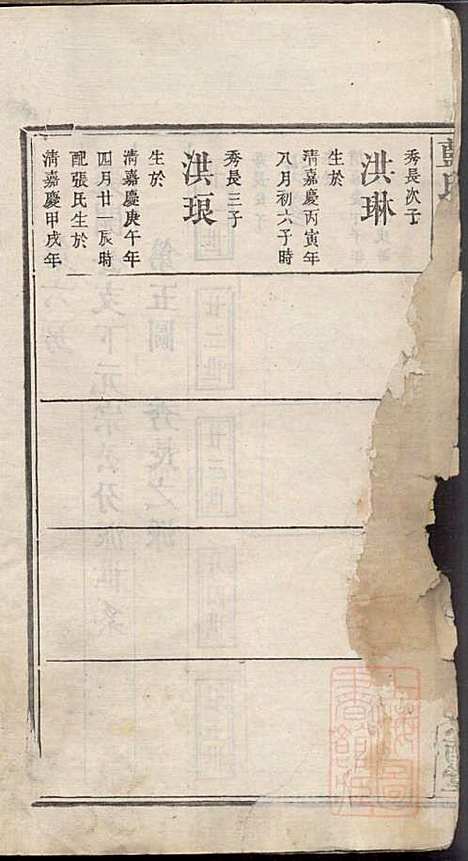 秀長次子
洪琳
生於
清嘉慶丙寅年
八月初六子時
秀長三子
洪琅
生於
清嘉慶庚午年
四月廿一辰時
配張氏生於
清嘉慶甲戌年